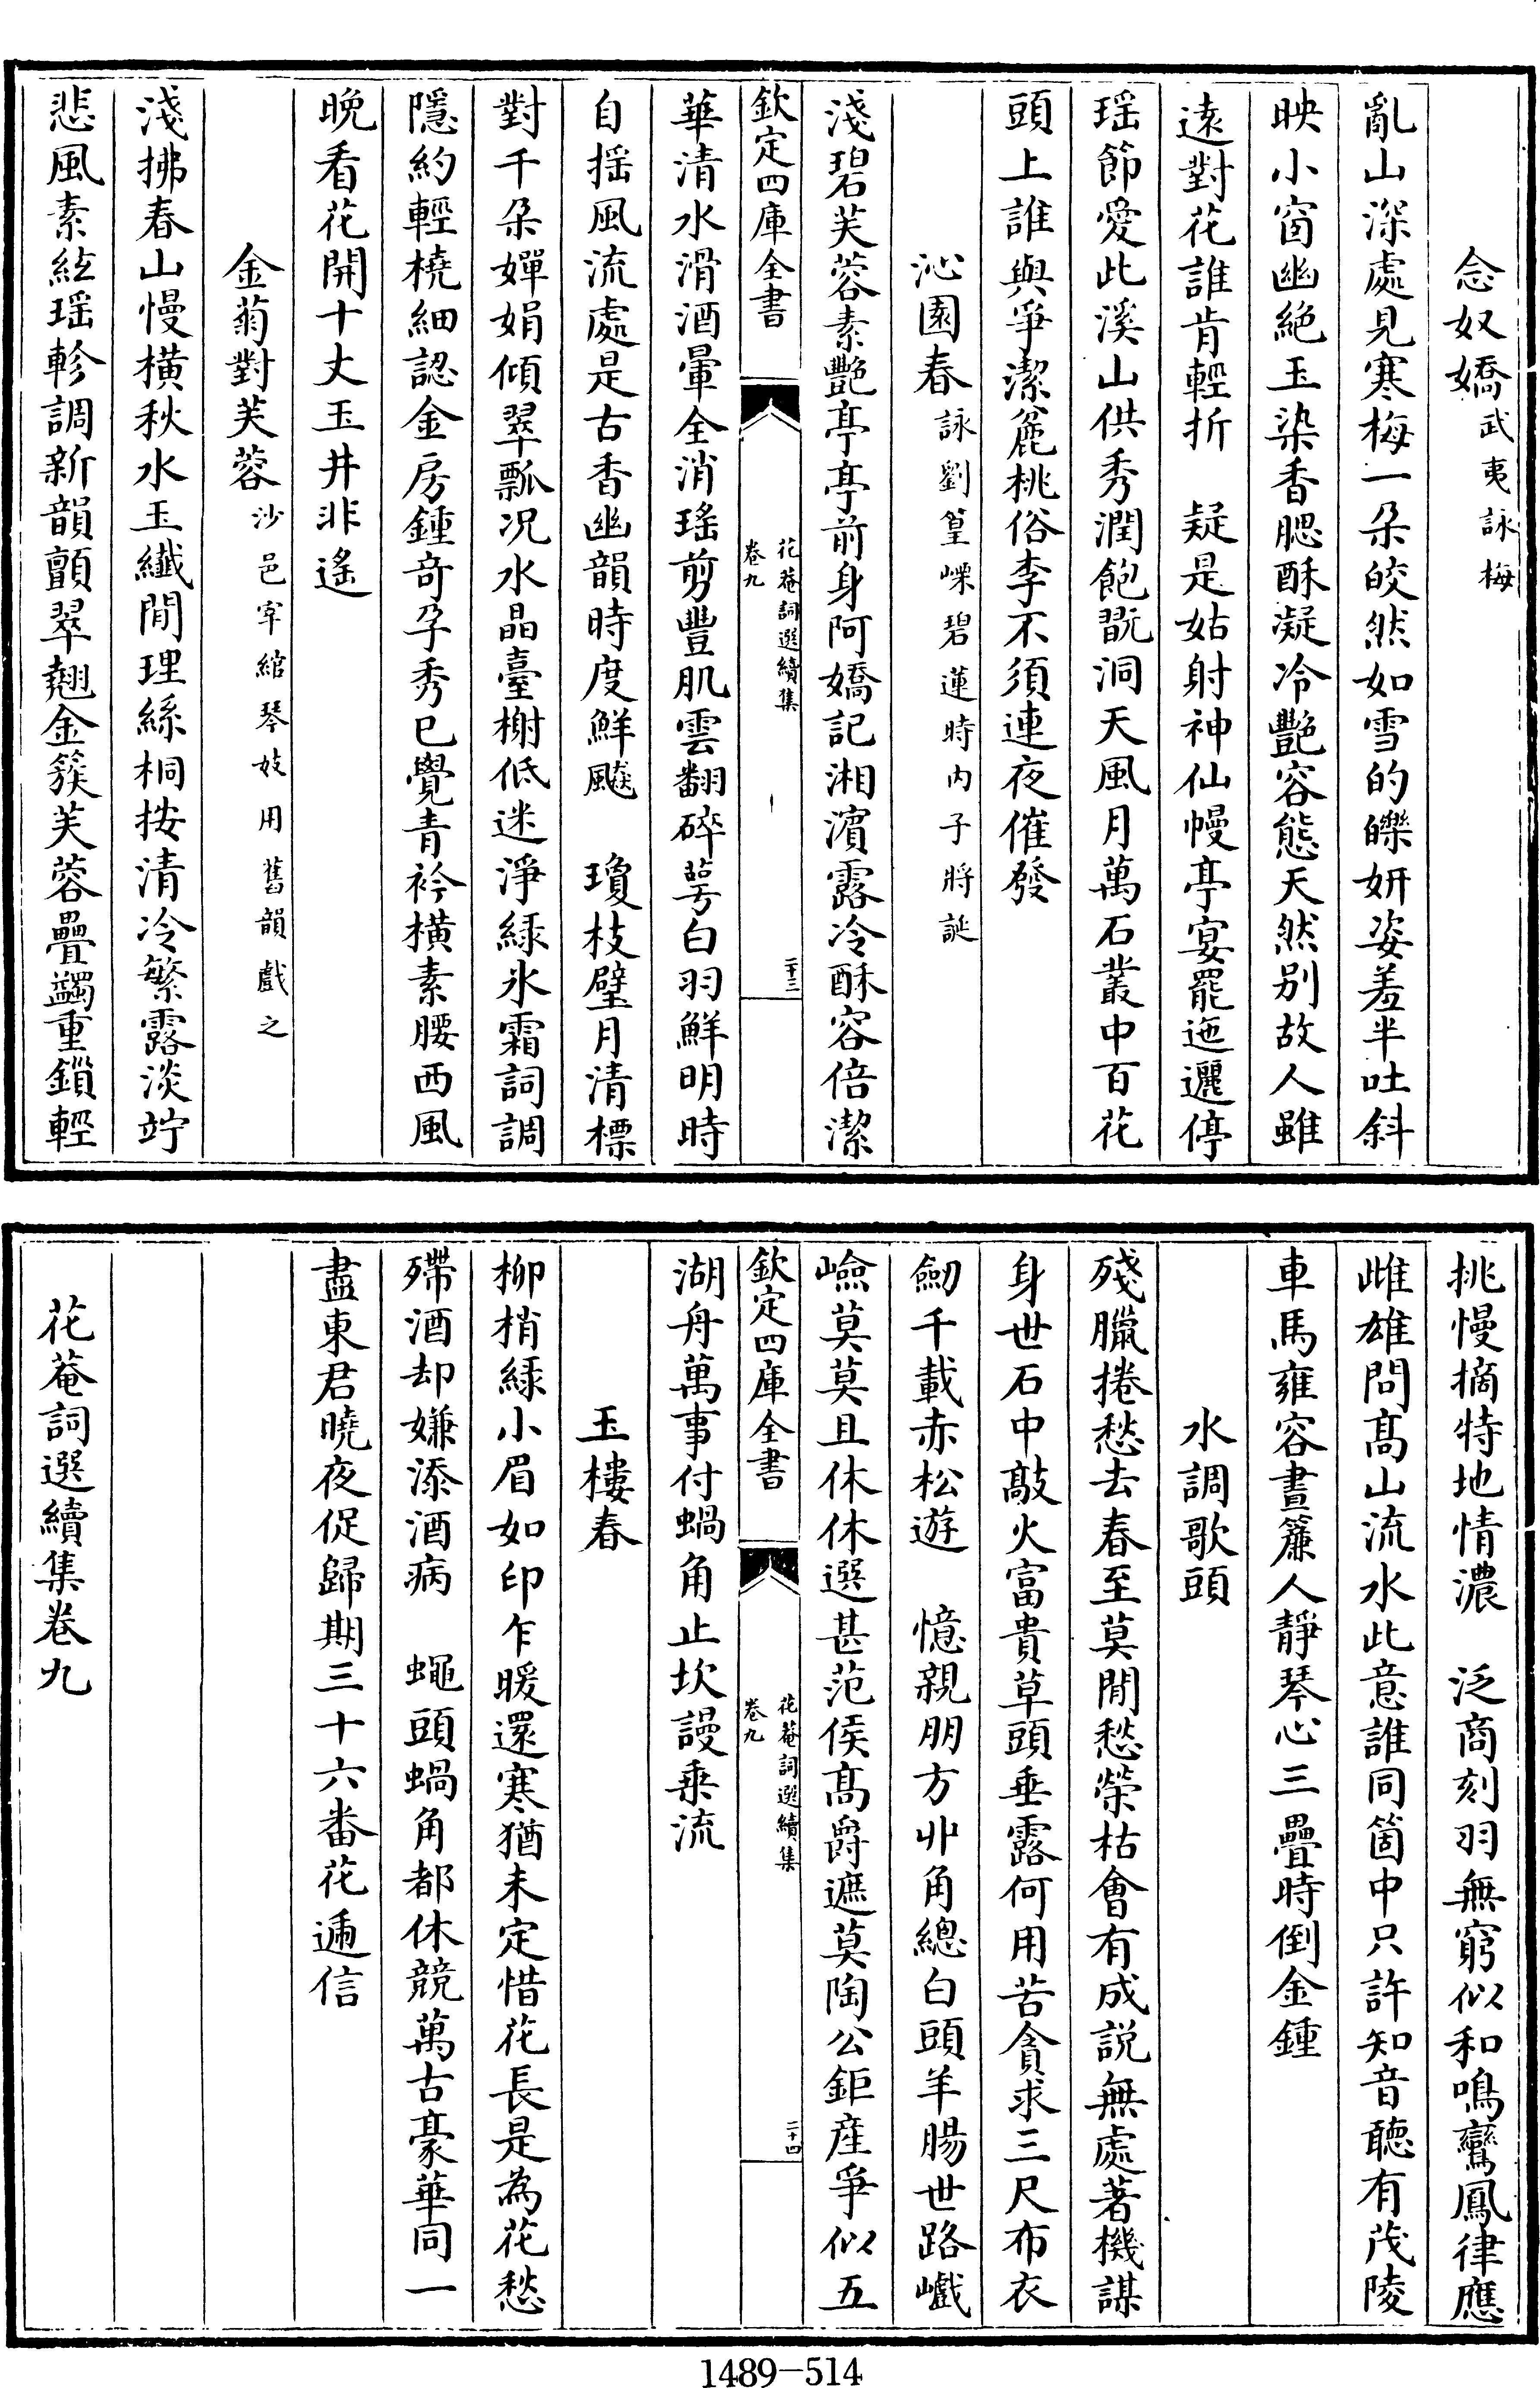 念奴嬌武夷詠梅
亂山深處見寒梅一朵皎然如雪的皪妍姿羞半吐斜
映小窗幽絶玉染香腮酥凝冷艶容態天然别故人雖
遠對花誰肯輕折　疑是姑射神仙幔亭宴罷迤邐停
瑶節愛此溪山供秀潤飽翫洞天風月萬石叢中百花
頭上誰與爭潔麄桃俗李不須連夜催發
沁園春詠劉篁㟳碧蓮時内子將誕
淺碧芙蓉素艶亭亭前身阿嬌記湘濵露冷酥容倍潔
欽定四庫全書
花菴詞選續集
卷九
二十三
華清水滑酒暈全消瑤剪豐肌雲翻碎萼白羽鮮明時
自揺風流處是古香幽韻時度鮮飈　瓊枝璧月清標
對千朵嬋娟傾翠瓢况水晶臺榭低迷淨緑氷霜詞調
隱約輕橈細認金房鍾奇孕秀已覺青衿横素腰西風
晩看花開十丈玉井非遙
金菊對芙蓉沙邑宰綰琴妓用舊韻戲之
淺拂春山慢横秋水玉纖閒理絲桐按清冷繁露淡竚
悲風素絃瑶軫調新韻顫翠翹金簇芙蓉疊蠲重鎖輕
挑慢摘特地情濃　泛商刻羽無窮似和鳴鸞鳳律應
雌雄問髙山流水此意誰同箇中只許知音聽有茂陵
車馬雍容晝簾人靜琴心三疊時倒金鍾
水調歌頭
殘臘捲愁去春至莫閒愁榮枯會有成説無處著機謀
身世石中敲火富貴草頭垂露何用苦貪求三尺布衣
劒千載赤松遊　憶親朋方丱角總白頭羊腸世路巇
嶮莫莫且休休選甚范侯髙爵遮莫陶公鉅産爭似五
欽定四庫全書
花菴詞選續集
卷九
二十四
湖舟萬事付蝸角止坎謾乗流
玉樓春
栁梢緑小眉如印乍暖還寒猶未定惜花長是為花愁
殢酒却嫌添酒病　蠅頭蝸角都休競萬古豪華同一
盡東君曉夜促歸期三十六番花逓信
花菴詞選續集卷九
1489-514